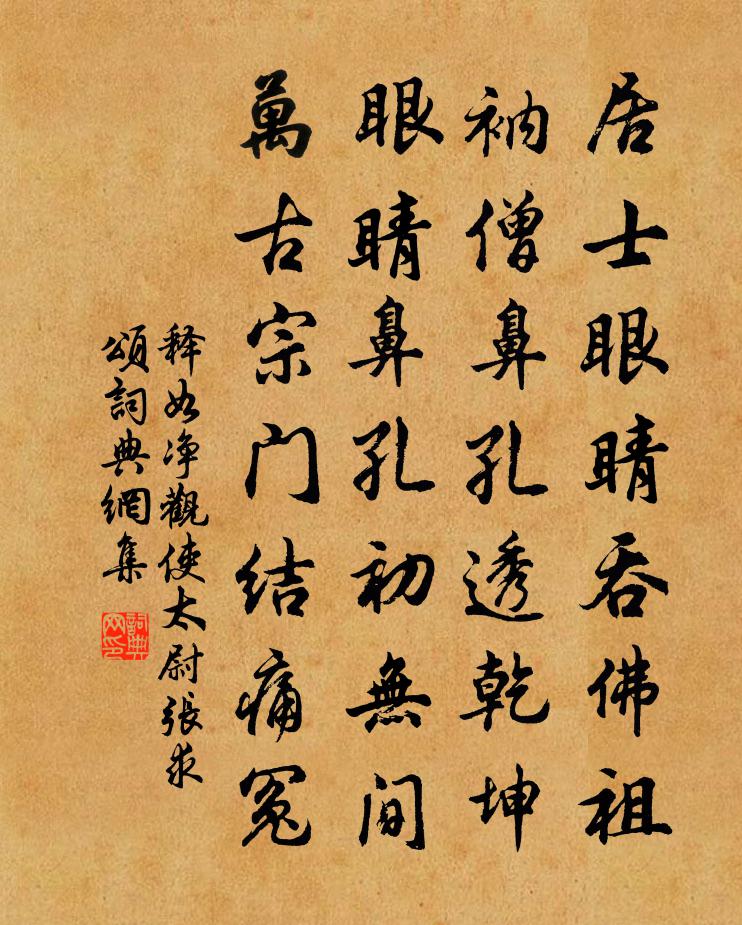 居士眼睛吞佛祖
衲僧鼻孔透乾坤
眼睛鼻孔初無間
萬古宗门结痛冤
释如净觀使太尉張求
頌詞典網集
詞典
网印